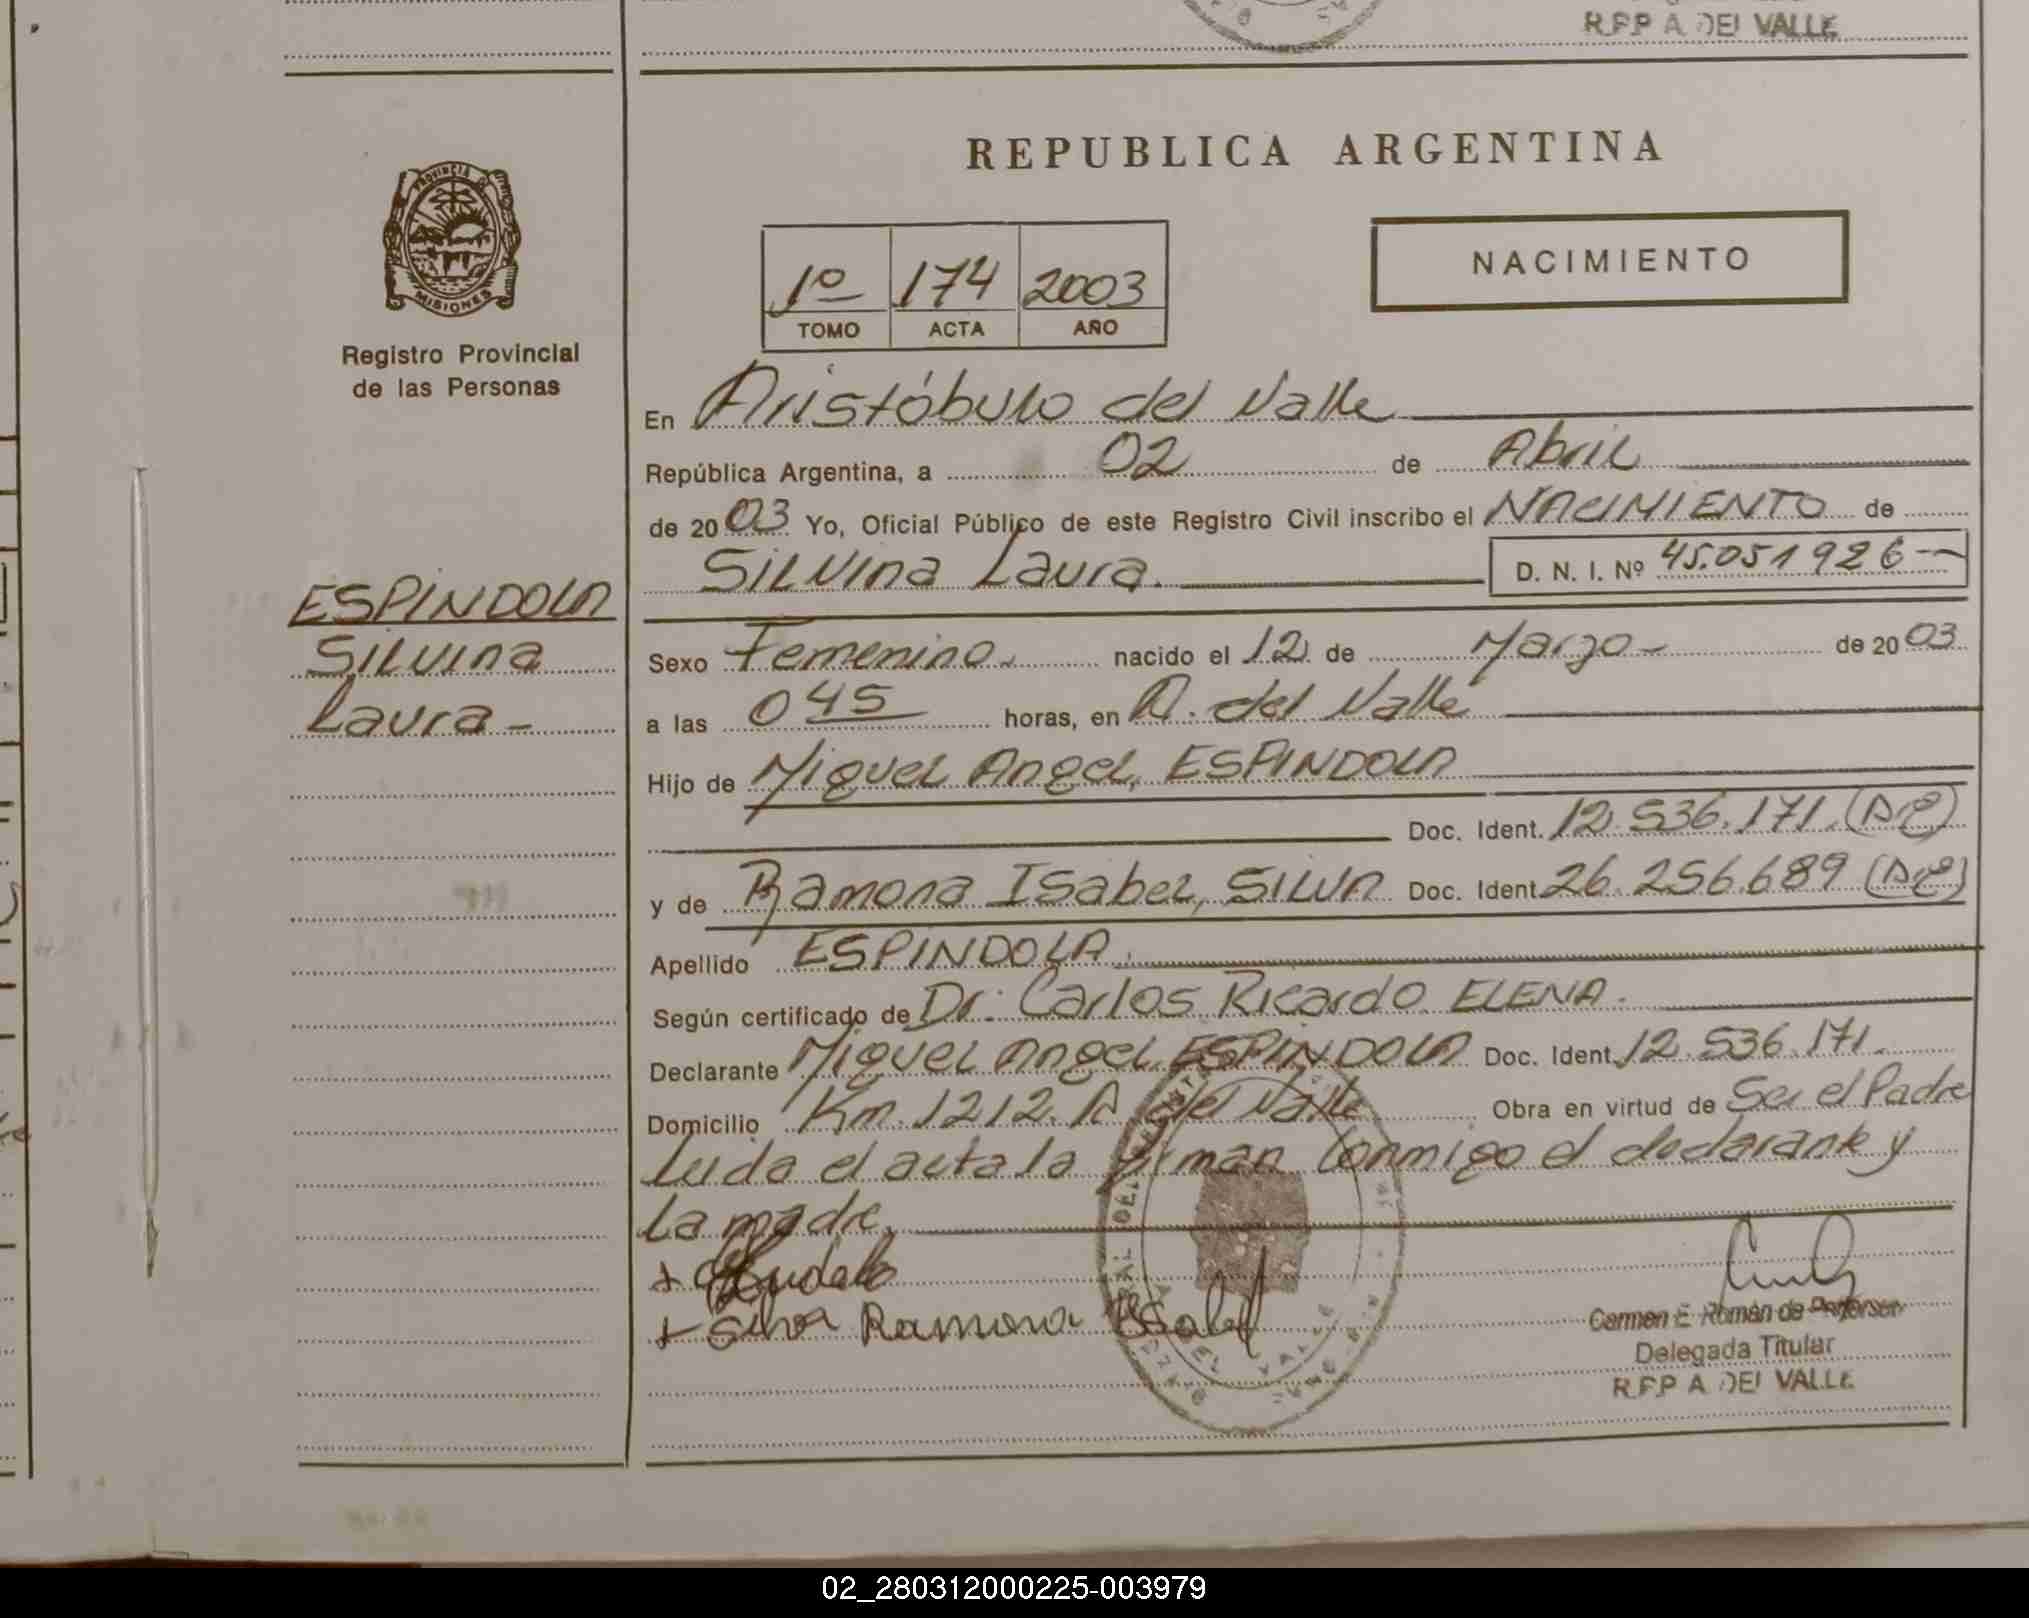 R.P.P A DEL VALLE
REPUBLICA ARGENTINA
PROVINCIA DE
MISIONES
Registro Provincial
de las Personas
1º 174 2003
TOMO ACTA AÑO
NACIMIENTO
En Aristóbulo del Valle
República Argentina, a 02 de Abril
de 2003 Yo, Oficial Público de este Registro Civil inscribo el NACIMIENTO de
Silvina Laura. D. N. I. Nº 45.051926
ESPINDOLA
Silvina
Laura-
Sexo Femenino. nacido el 12 de Marzo- de 2003
a las 045 horas, en A. del Valle
Hijo de Miguel Angel, ESPINDOLA
Doc. Ident. 12.536.171.
y de Ramona Isabel, SILVA Doc. Ident 26.256.689
Apellido ESPINDOLA.
Según certificado de Dr. Carlos Ricardo ELENA.
Declarante Miguel Angel ESPINDOLA Doc. Ident. 12.536.171.
Domicilio Km. 1212. A del Valle Obra en virtud de Ser el Padre
Leida el acta la firman conmigo el declarante y
La madre.
+ Silva Ramona Isabel
Carmen E. Román de Pedersen
Delegada Titular
R.P.P A DEL VALLE
02_280312000225-003979